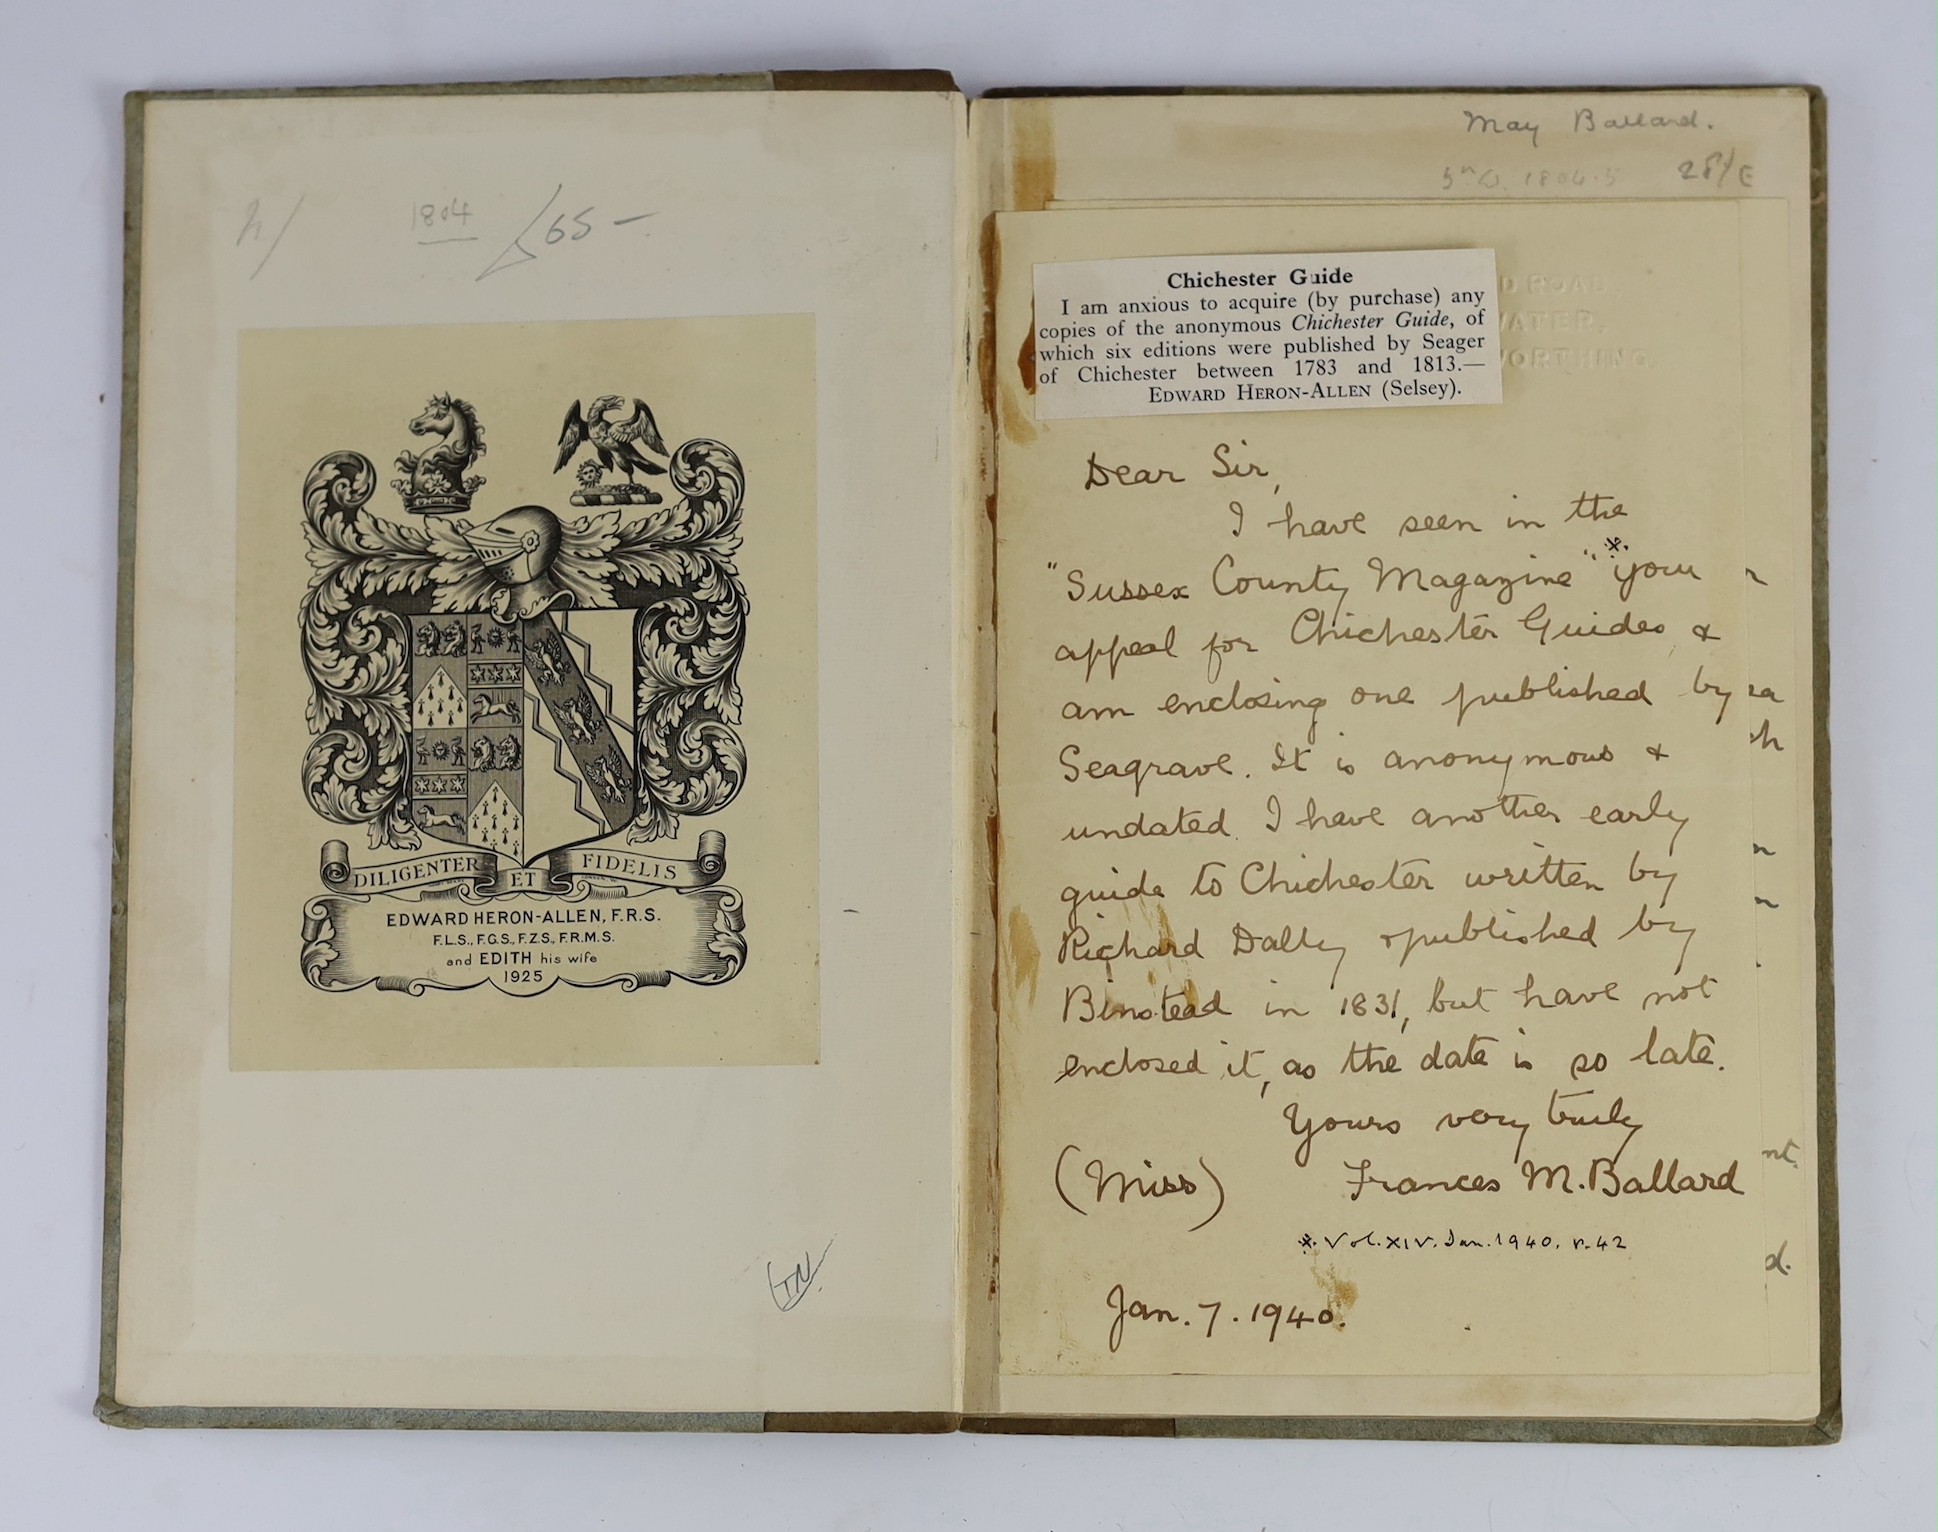 1804
65 –
DILIGENTER ET FIDELIS
EDWARD HERON-ALLEN, F.R.S.
F.L.S., F.G.S., F.Z.S., F.R.M.S.
and EDITH his wife
1925
TN
May Ballard.
1804.5
D ROAD,
WATER,
WORTHING.
Chichester Guide
I am anxious to acquire (by purchase) any
copies of the anonymous Chichester Guide, of
which six editions were published by Seager
of Chichester between 1783 and 1813.—
EDWARD HERON-ALLEN (Selsey).
Dear Sir,
I have seen in the
"Sussex County Magazine" * your
appeal for Chichester Guides, &
am enclosing one published by
Seagrave. It is anonymous &
undated. I have another early
guide to Chichester written by
Richard Dally & published by
Binstead in 1831, but have not
enclosed it, as the date is so late.
Yours very truly
(Miss) Frances M. Ballard
*. Vol. XIV. Jan. 1940. p. 42
Jan. 7. 1940.